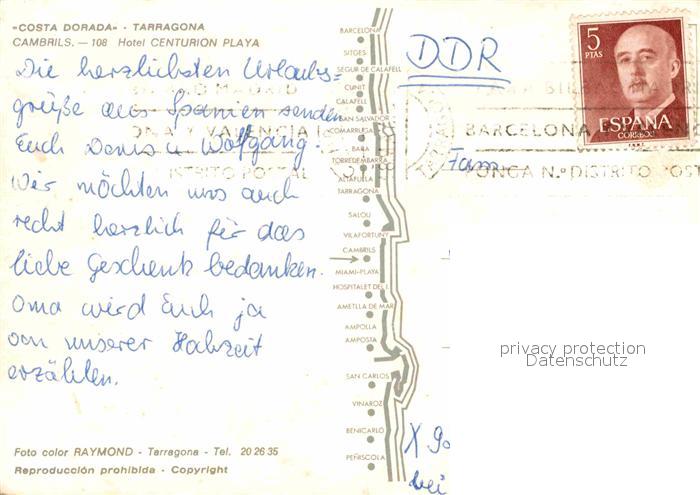 «COSTA DORADA» - TARRAGONA
CAMBRILS. — 108 Hotel CENTURION PLAYA
Die herzlichsten Urlaubs=
grüße aus Spanien senden
Euch u Wolfgang.
Wir möchten uns auch
recht herzlich für das
liebe Geschenk bedanken.
Oma wird Euch ja
von unserer Hochzeit
erzählen.
Foto color RAYMOND - Tarragona - Tel. 20 26 35
Reproducción prohibida - Copyright
BARCELONA
SITGES
SEGUR DE CALAFELL
CUNIT
CALAFELL
SAN SALVADOR
COMARRUGA
BARA
TORREDEMBARRA
ALTAFULLA
TARRAGONA
SALOU
VILAFORTUNY
CAMBRILS
MIAMI-PLAYA
HOSPITALET DEL I.
AMETLLA DE MAR
AMPOLLA
AMPOSTA
SAN CARLOS
VINAROZ
BENICARLO
PEÑISCOLA
DDR
5
PTAS
ESPAÑA
CORREOS
MADRID
ONA Y VALENCIA
DISTRITO POSTAL
BARCELONA
PONGA N.º DISTRITO POST
Fam.
X 90
bei
privacy protection
Datenschutz